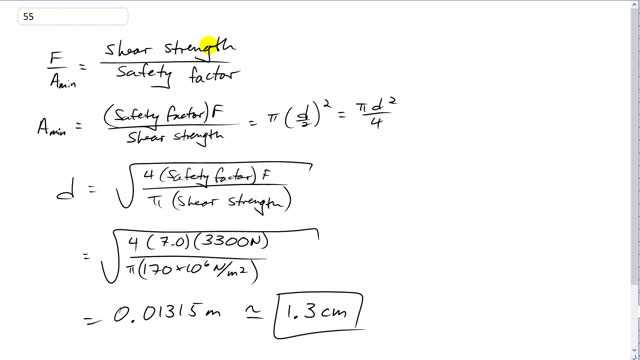 55
F/Amin = Shear strength / Safety factor
Amin = (Safety factor) F / Shear strength = π (d/2)² = πd²/4
d = √(4 (Safety factor) F / π (Shear strength))
= √(4 (7.0) (3300N) / π (170 × 10⁶ N/m²))
= 0.01315 m ≃ 1.3 cm